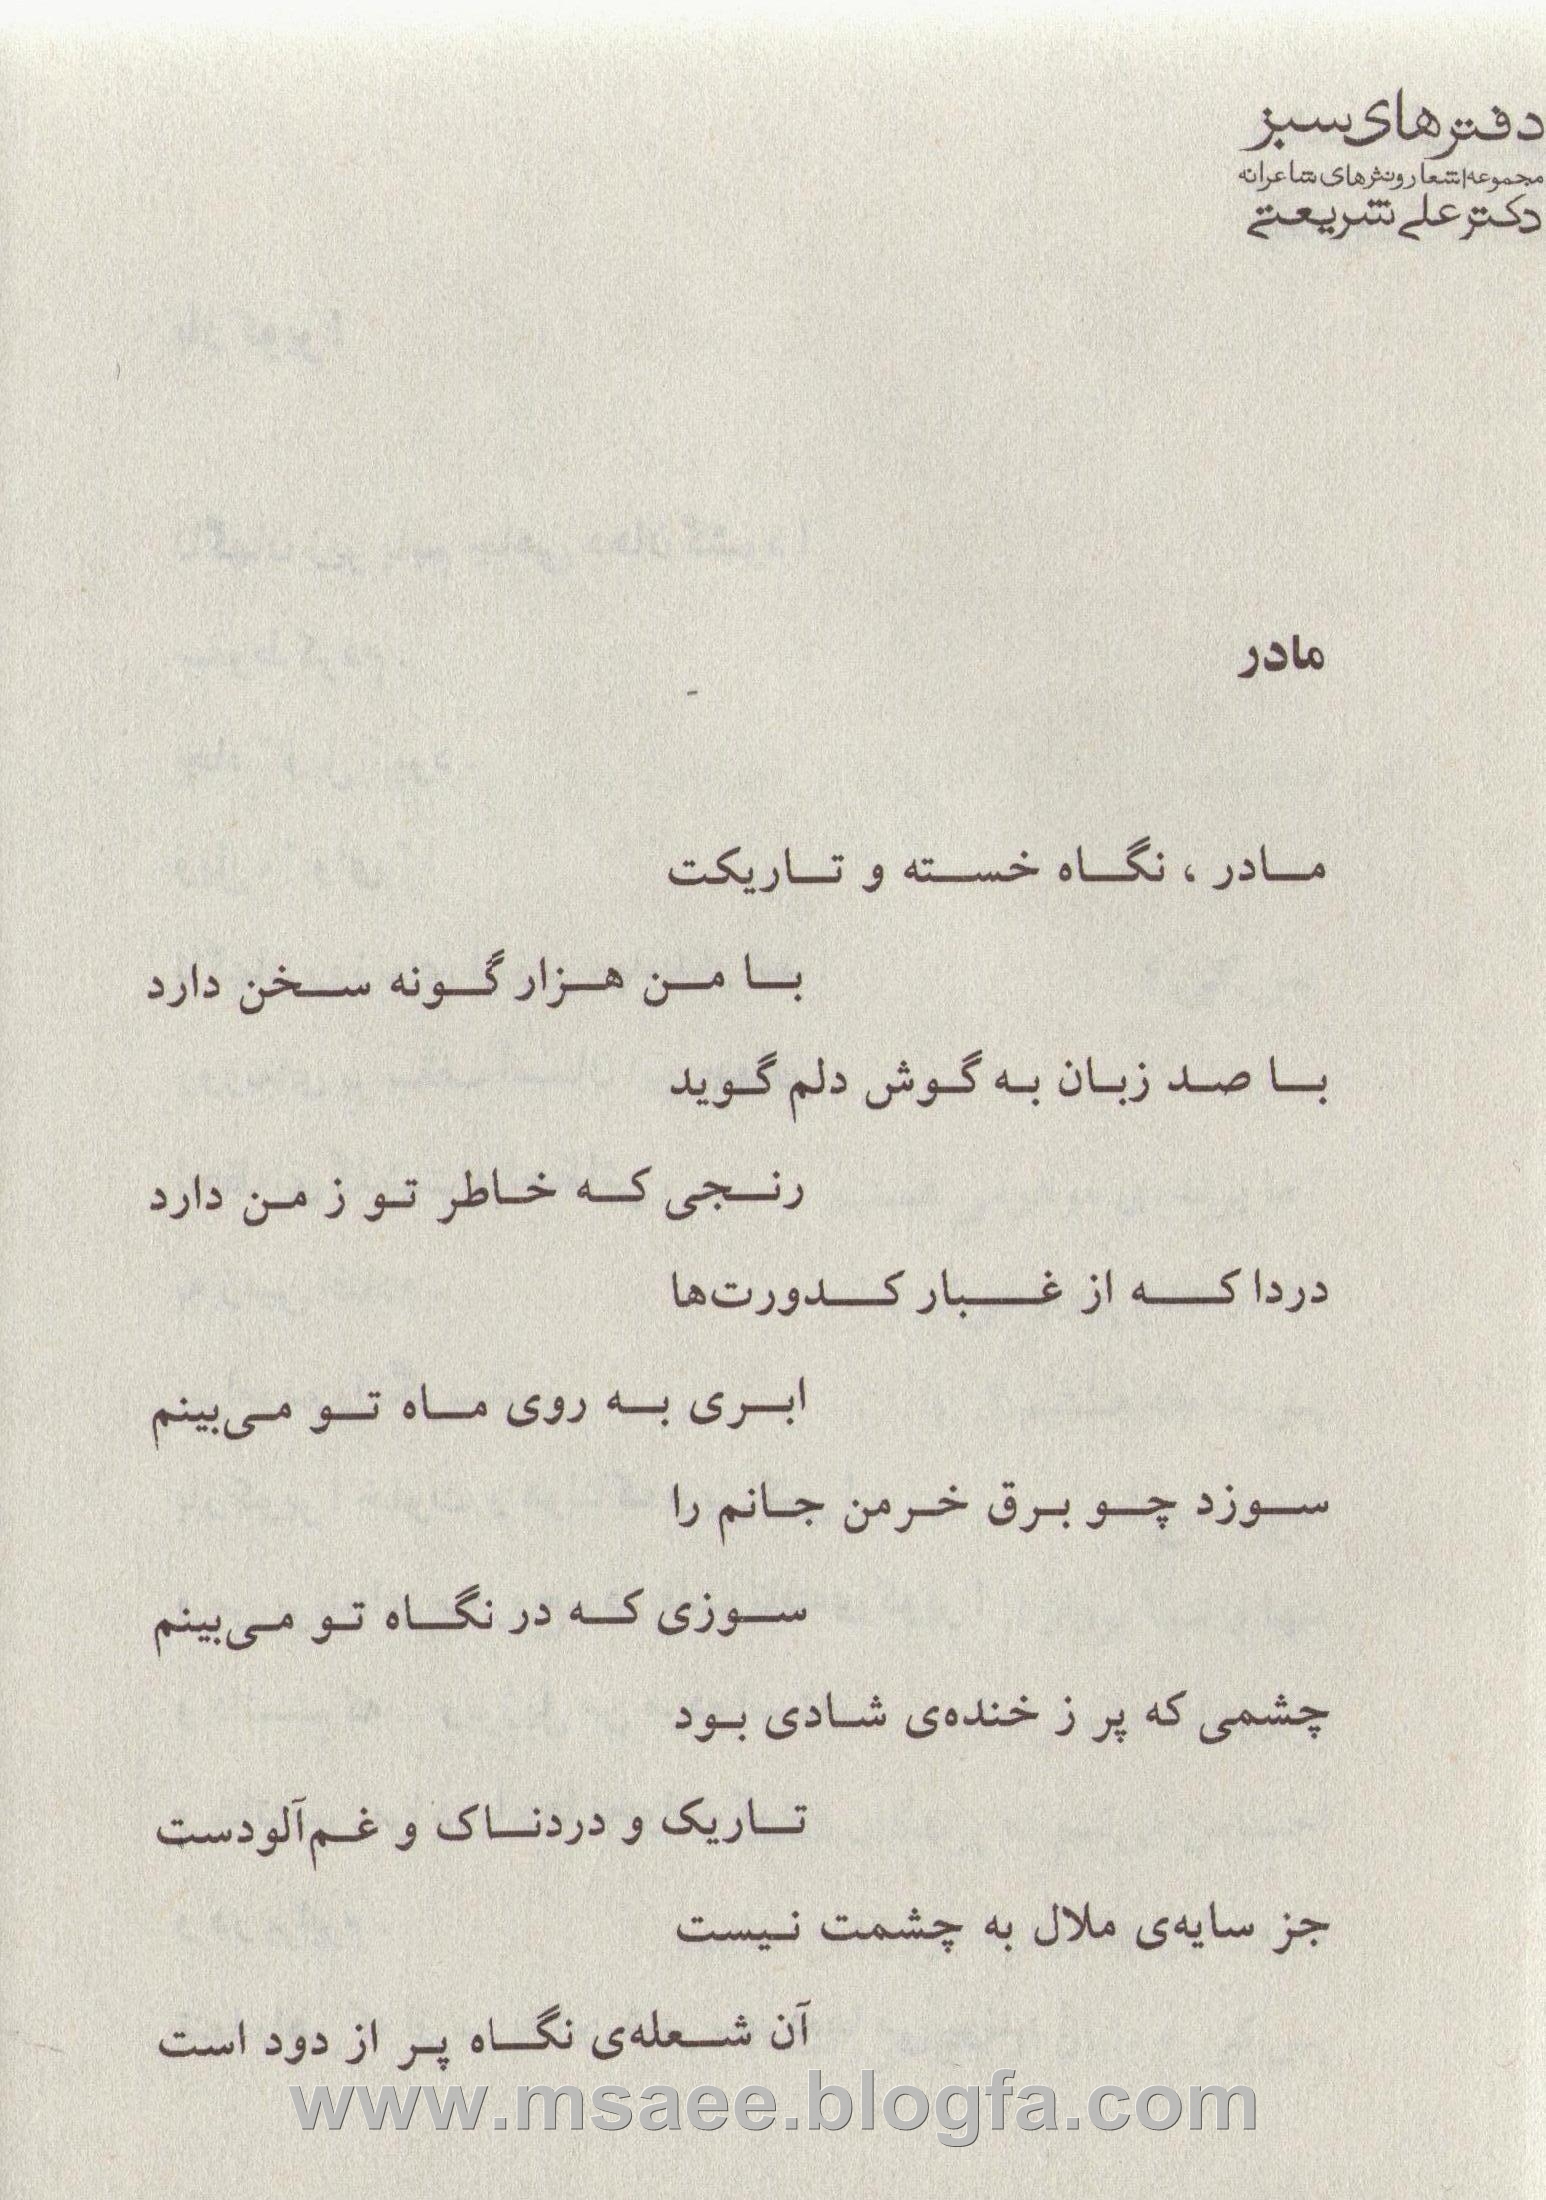 دفترهای سبز
مجموعه اشعار و نثرهای شاعرانه
دکتر علی شریعتی
مادر
مادر ، نگاه خسته و تاریکت
با من هزار گونه سخن دارد
با صد زبان به گوش دلم گوید
رنجی که خاطر تو ز من دارد
دردا که از غبار کدورت‌ها
ابری به روی ماه تو می‌بینم
سوزد چو برق خرمن جانم را
سوزی که در نگاه تو می‌بینم
چشمی که پر ز خنده‌ی شادی بود
تاریک و دردناک و غم‌آلودست
جز سایه‌ی ملال به چشمت نیست
آن شعله‌ی نگاه پر از دود است
www.msaee.blogfa.com